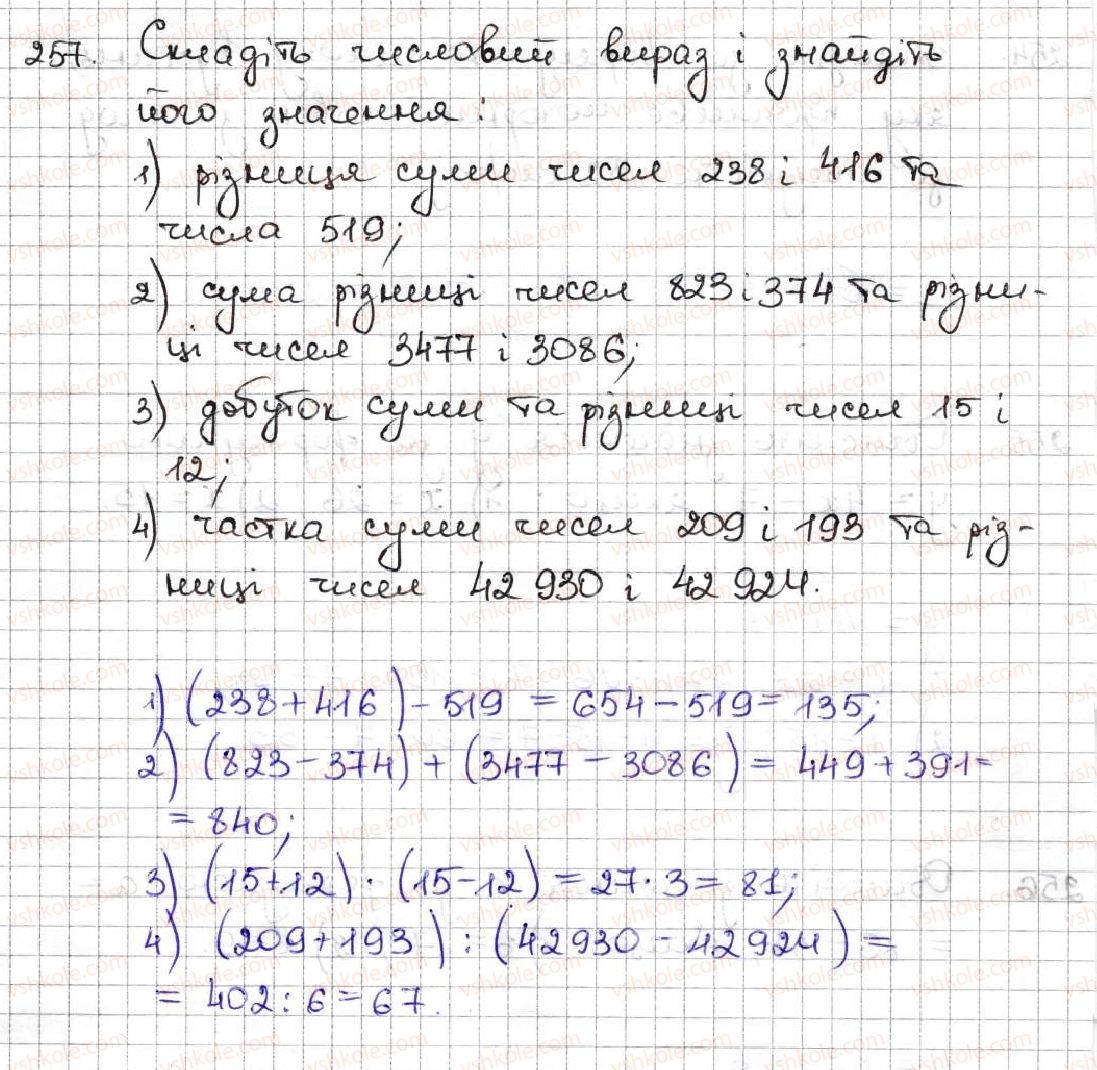 257. Складіть числовий вираз і знайдіть
його значення:
1) різниця суми чисел 238 і 416 та
числа 519;
2) сума різниці чисел 823 і 374 та різни-
ці чисел 3477 і 3086;
3) добуток суми та різниці чисел 15 і
12;
4) частка суми чисел 209 і 193 та різ-
ниці чисел 42 930 і 42 924.
1) (238+416)-519 = 654-519= 135;
2) (823-374) + (3477 - 3086) = 449+391=
= 840;
3) (15+12) · (15-12) = 27·3 = 81;
4) (209+193) : (42930 - 42924) =
= 402:6=67.